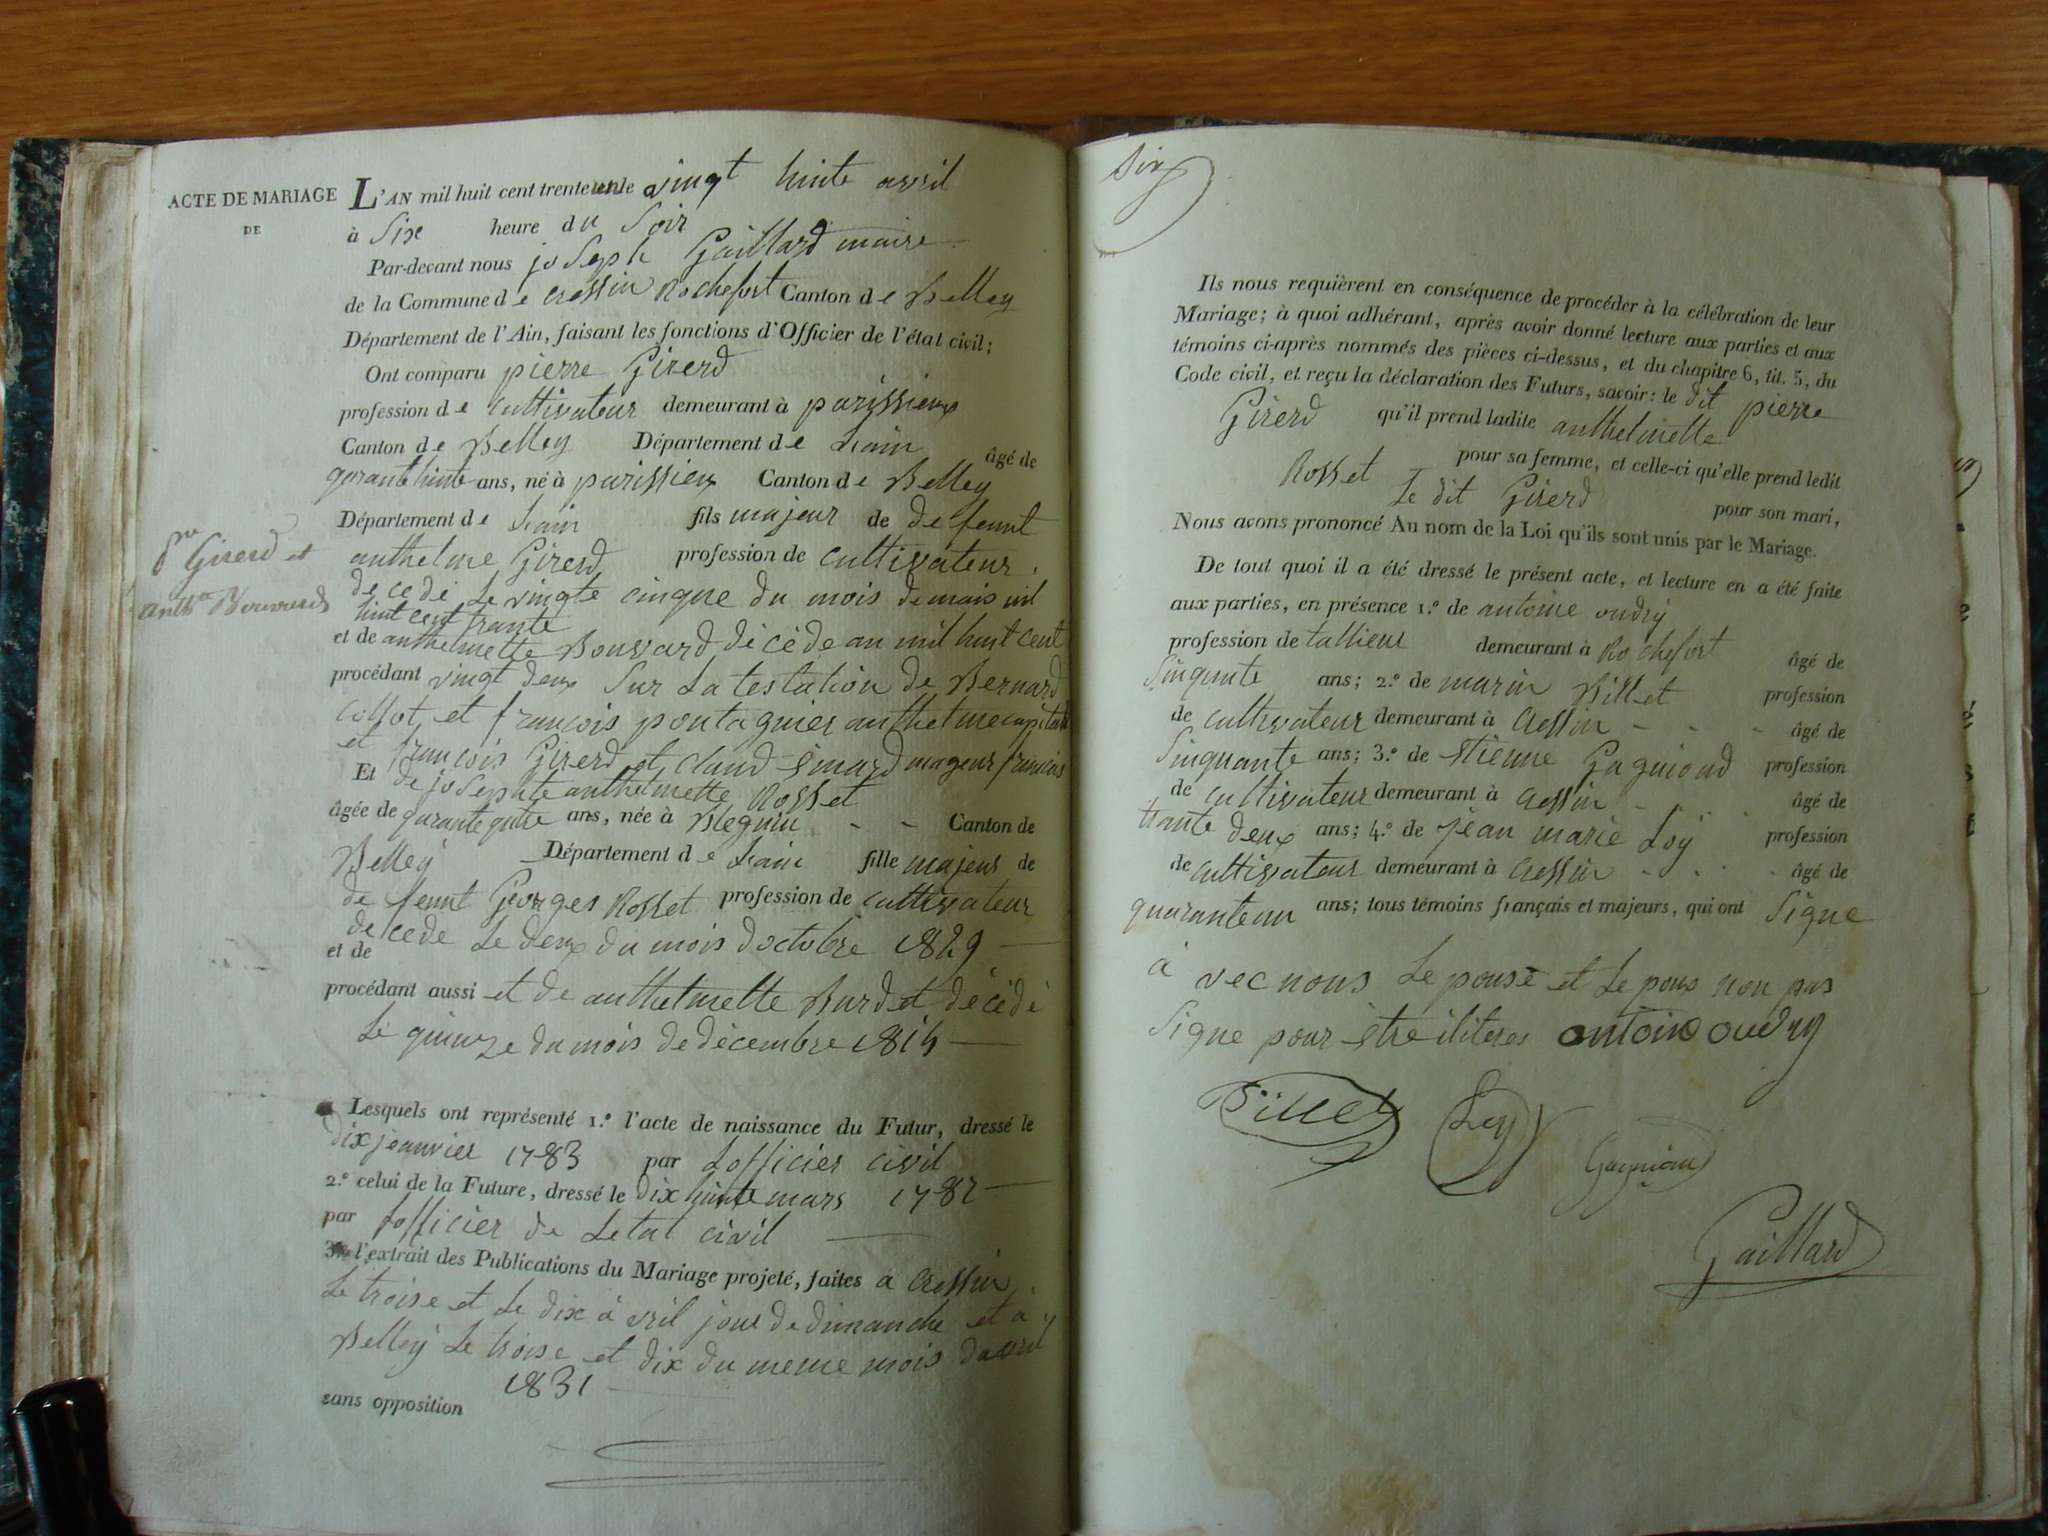 ACTE DE MARIAGE
DE
L'AN mil huit cent trente un le vingt huite avril
à Sixe heure du Soir
Par-devant nous joseph Gaillard maire
de la Commune de cressin Rochefort Canton de Belley
Département de l'Ain, faisant les fonctions d'Officier de l'état civil;
Ont comparu pierre Girerd
profession de cultivateur demeurant à parissieux
Canton de Belley Département de Lain âgé de
qarantehuite ans, né à parissieux Canton de Belley
Département de Lain fils majeur de defeunt
anthelme Girerd profession de cultivateur
decedé Le vingte cinque du mois de mais mil
huit cent trante
et de anthelmette Bouvard décèdé an mil huit cent
procédant vingt deux Sur La testation de Bernard
Collot et francois pontagnier anthelme
et francois Girerd et claud majeur francois
Et de josephte anthelmette Rosset
âgée de quarante ans, née à Canton de
Belley Département de Lain fille majeur de
de feunt Georges Rosset profession de cultivateur
decede Le deux du mois doctobre 1829
et de
procédant aussi et de anthelmette Burdet décédé
Le quinze du mois de décembre 1814
Lesquels ont représenté 1.º l'acte de naissance du Futur, dressé le
dix jeanvier 1783 par Lofficier civil
2.º celui de la Future, dressé le dix huite mars 1787
par Lofficier de Letat civil
3.º l'extrait des Publications du Mariage projeté, faites à cressin
Le troise et Le dix àvril jour de dimanche et à
Belley Le troise et dix du meme mois davril
1831
sans opposition
pre
Girerd et
anthte Bouvard
Six
Ils nous requièrent en conséquence de procéder à la célébration de leur
Mariage; à quoi adhérant, après avoir donné lecture aux parties et aux
témoins ci-après nommés des pièces ci-dessus, et du chapitre 6, tit. 5, du
Code civil, et reçu la déclaration des Futurs, savoir: le dit pierre
Girerd qu'il prend ladite anthelmette
Rosset pour sa femme, et celle-ci qu'elle prend ledit
Le dit Girerd pour son mari,
Nous avons prononcé Au nom de la Loi qu'ils sont unis par le Mariage.
De tout quoi il a été dressé le présent acte, et lecture en a été faite
aux parties, en présence 1.º de antoine oudry
profession de tallieur demeurant à Rochefort âgé de
Sinquante ans; 2.º de marin Billet profession
de cultivateur demeurant à cressin âgé de
Sinquante ans; 3.º de Etienne Gagniond profession
de cultivateur demeurant à cressin âgé de
trante deux ans; 4.º de jean marie Loÿ profession
de cultivateur demeurant à cressin âgé de
quaranteun ans; tous témoins français et majeurs, qui ont Signe
à vec nous Lepouse et Lepous non pas
Signe pour être iliteres antoine oudry
Billet Loy Gagniond
Gaillard